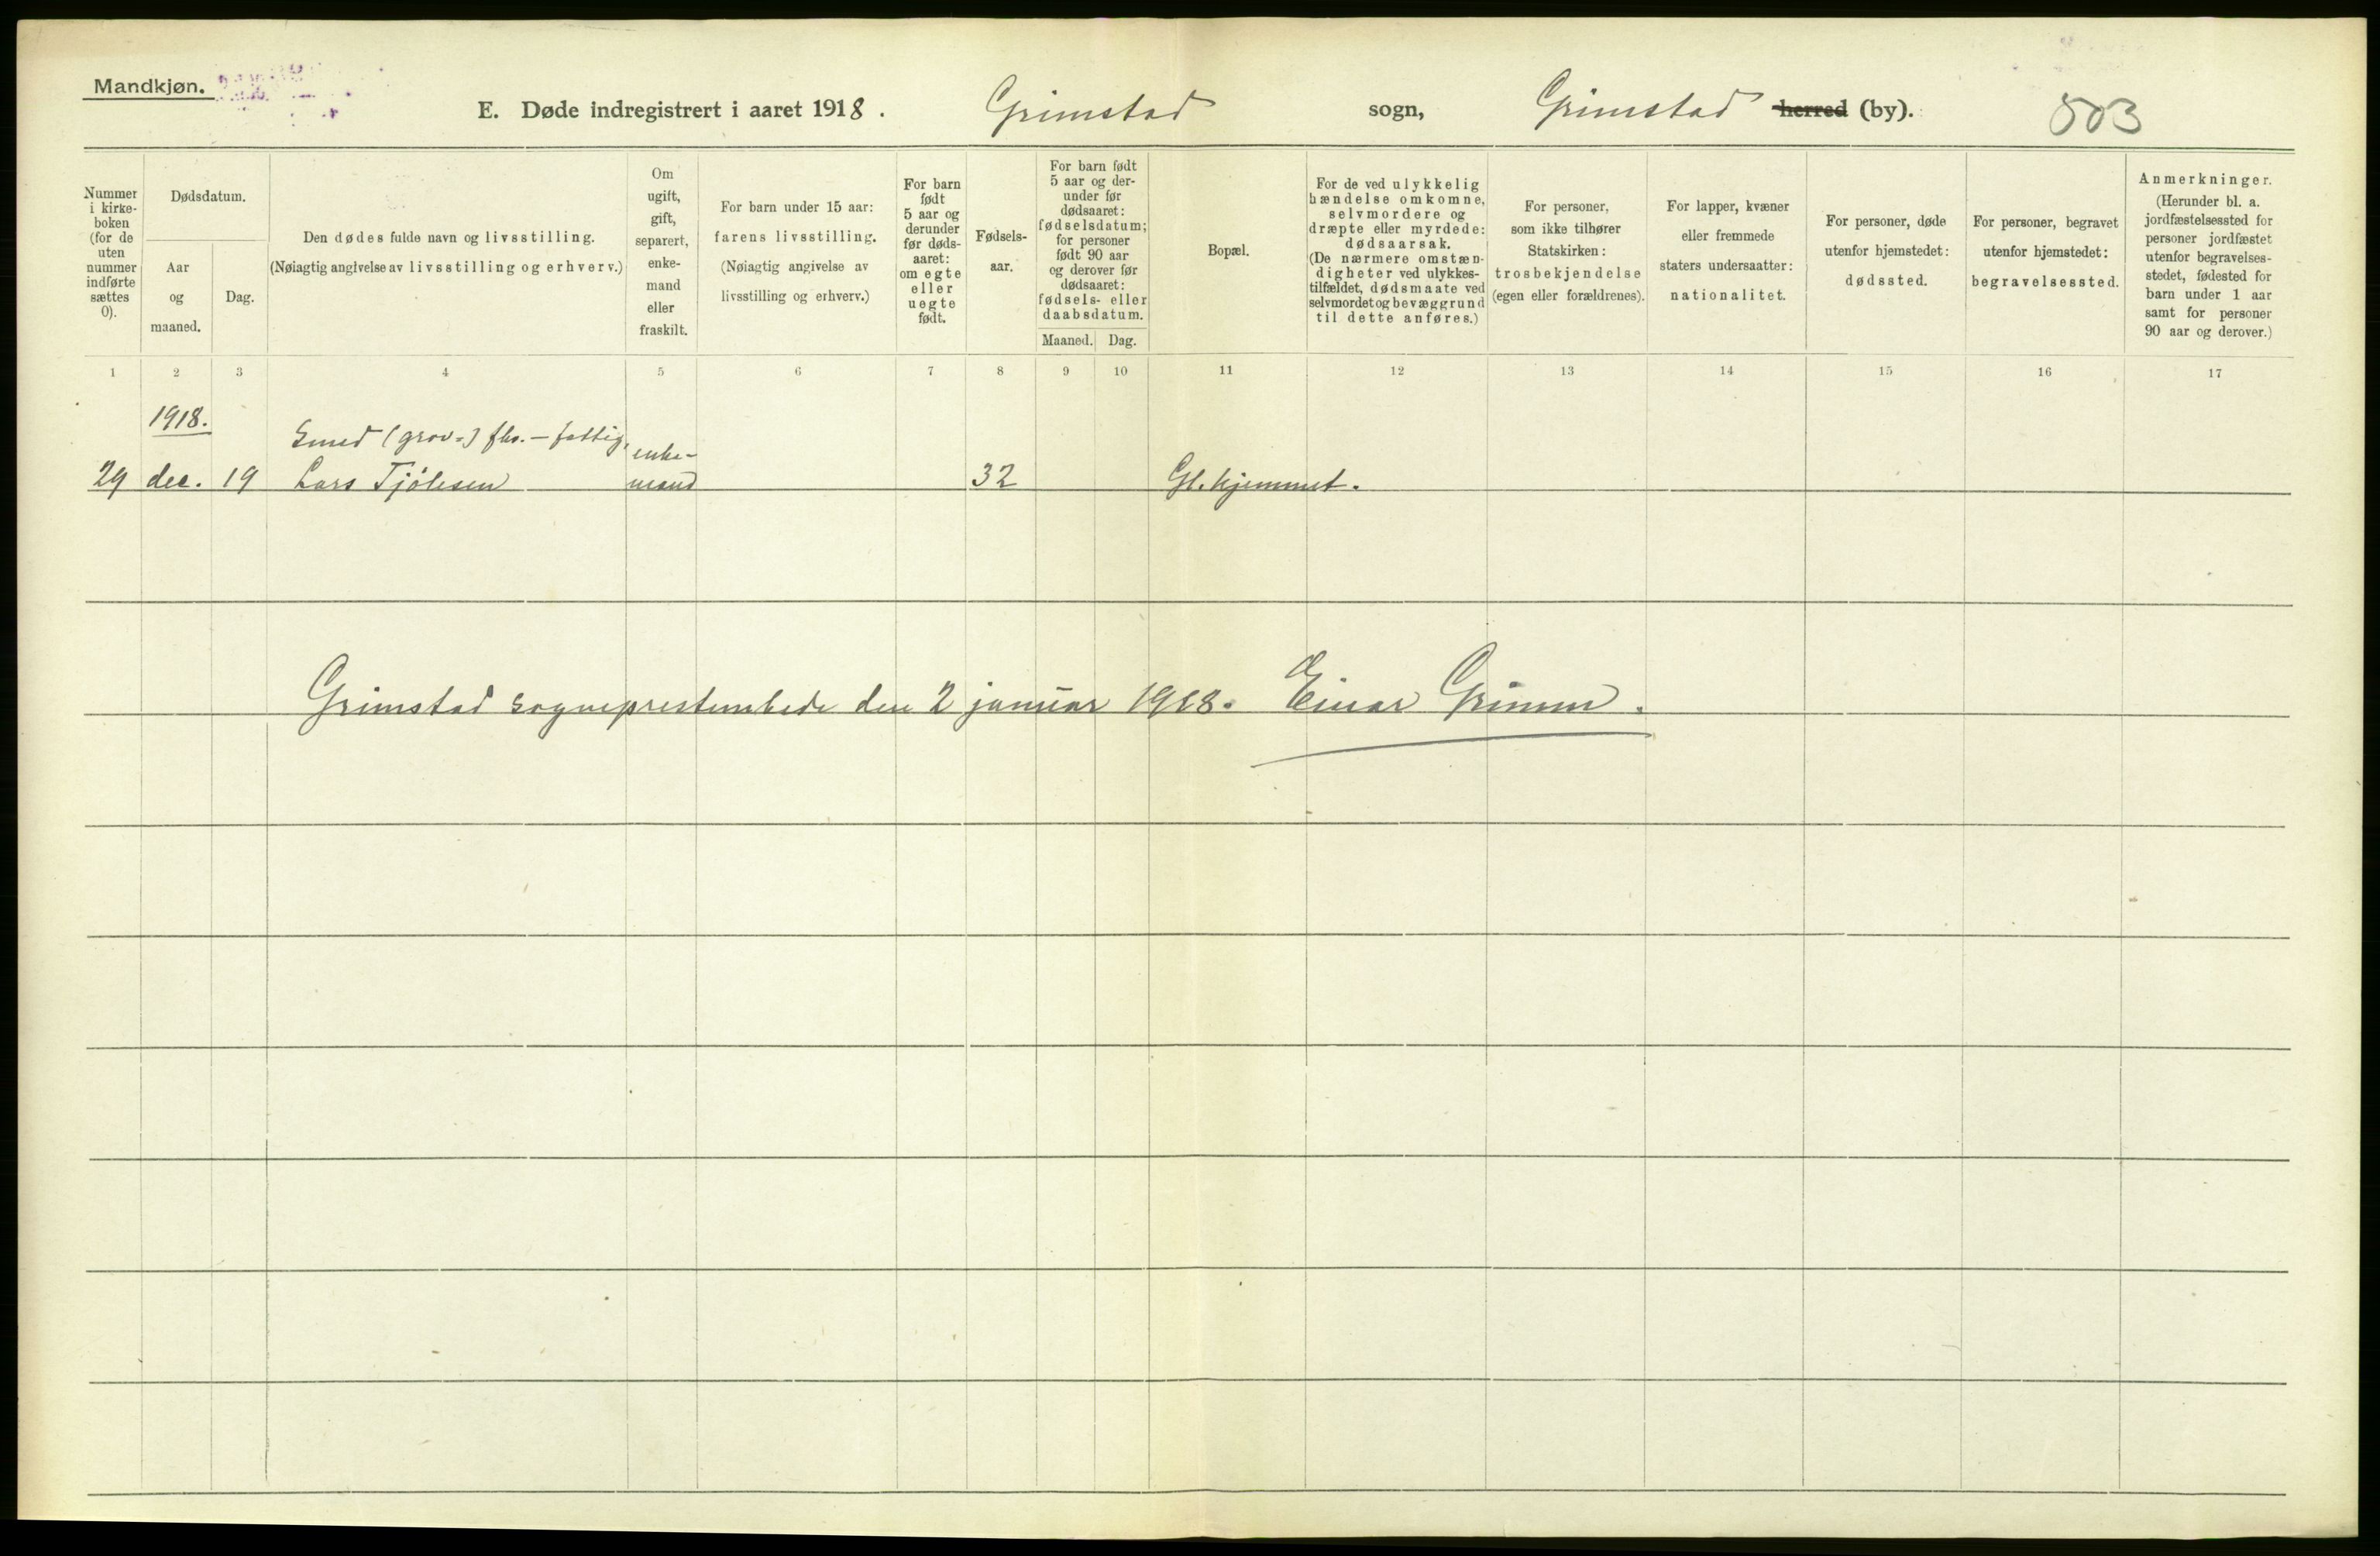 Mandkjøn.
E. Døde indregistrert i aaret 1918. Grimstad sogn, Grimstad herred (by). 503
Nummer
i kirke-
boken
(for de
uten
nummer
indførte
sættes
0).
Dødsdatum.
Aar
og
maaned.
Dag.
Den dødes fulde navn og livsstilling.
(Nøiagtig angivelse av livsstilling og erhverv.)
Om
ugift,
gift,
separert,
enke-
mand
eller
fraskilt.
For barn under 15 aar:
farens livsstilling.
(Nøiagtig angivelse av
livsstilling og erhverv.)
For barn
født
5 aar og
derunder
før døds-
aaret:
om egte
eller
uegte
født.
Fødsels-
aar.
For barn født
5 aar og der-
under før
dødsaaret:
fødselsdatum;
for personer
født 90 aar
og derover før
dødsaaret:
fødsels- eller
daabsdatum.
Maaned. Dag.
Bopæl.
For de ved ulykkelig
hændelse omkomne,
selvmordere og
dræpte eller myrdede:
dødsaarsak.
(De nærmere omstæn-
digheter ved ulykkes-
tilfældet, dødsmaate ved
selvmordet og bevæggrund
til dette anføres.)
For personer,
som ikke tilhører
Statskirken:
trosbekjendelse
(egen eller forældrenes).
For lapper, kvæner
eller fremmede
staters undersaatter:
nationalitet.
For personer, døde
utenfor hjemstedet:
dødssted.
For personer, begravet
utenfor hjemstedet:
begravelsessted.
Anmerkninger.
(Herunder bl. a.
jordfæstelsessted for
personer jordfæstet
utenfor begravelses-
stedet, fødested for
barn under 1 aar
samt for personer
90 aar og derover.)
1 2 3 4 5 6 7 8 9 10 11 12 13 14 15 16 17
1918.
Smed (grov=) fhv. - fattig, enke-
29 dec. 19 Lars Tjölesen mand 32 Gl. hjemmet.
Grimstad sogneprestembede den 2 januar 1918. Einar Grimm.